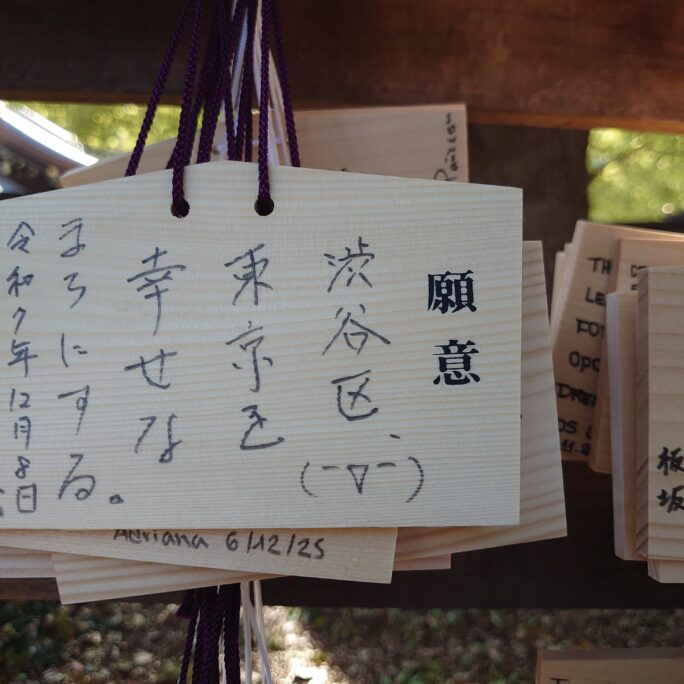 願意
渋谷区、
(-▽-)
東京を
幸せな
まちにする。
令和7年12月8日
Adriana 6/12/25
TH
LE
板
坂